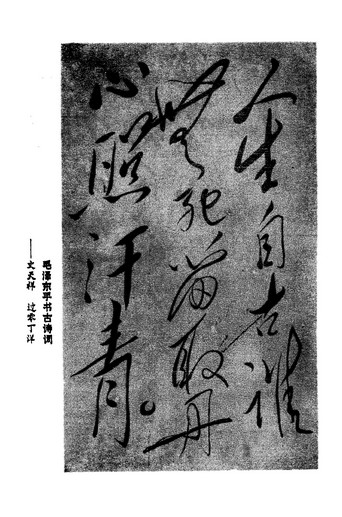 人生自古谁
無死留取丹
心照汗青。
毛泽东手书古诗词
——文天祥 过零丁洋